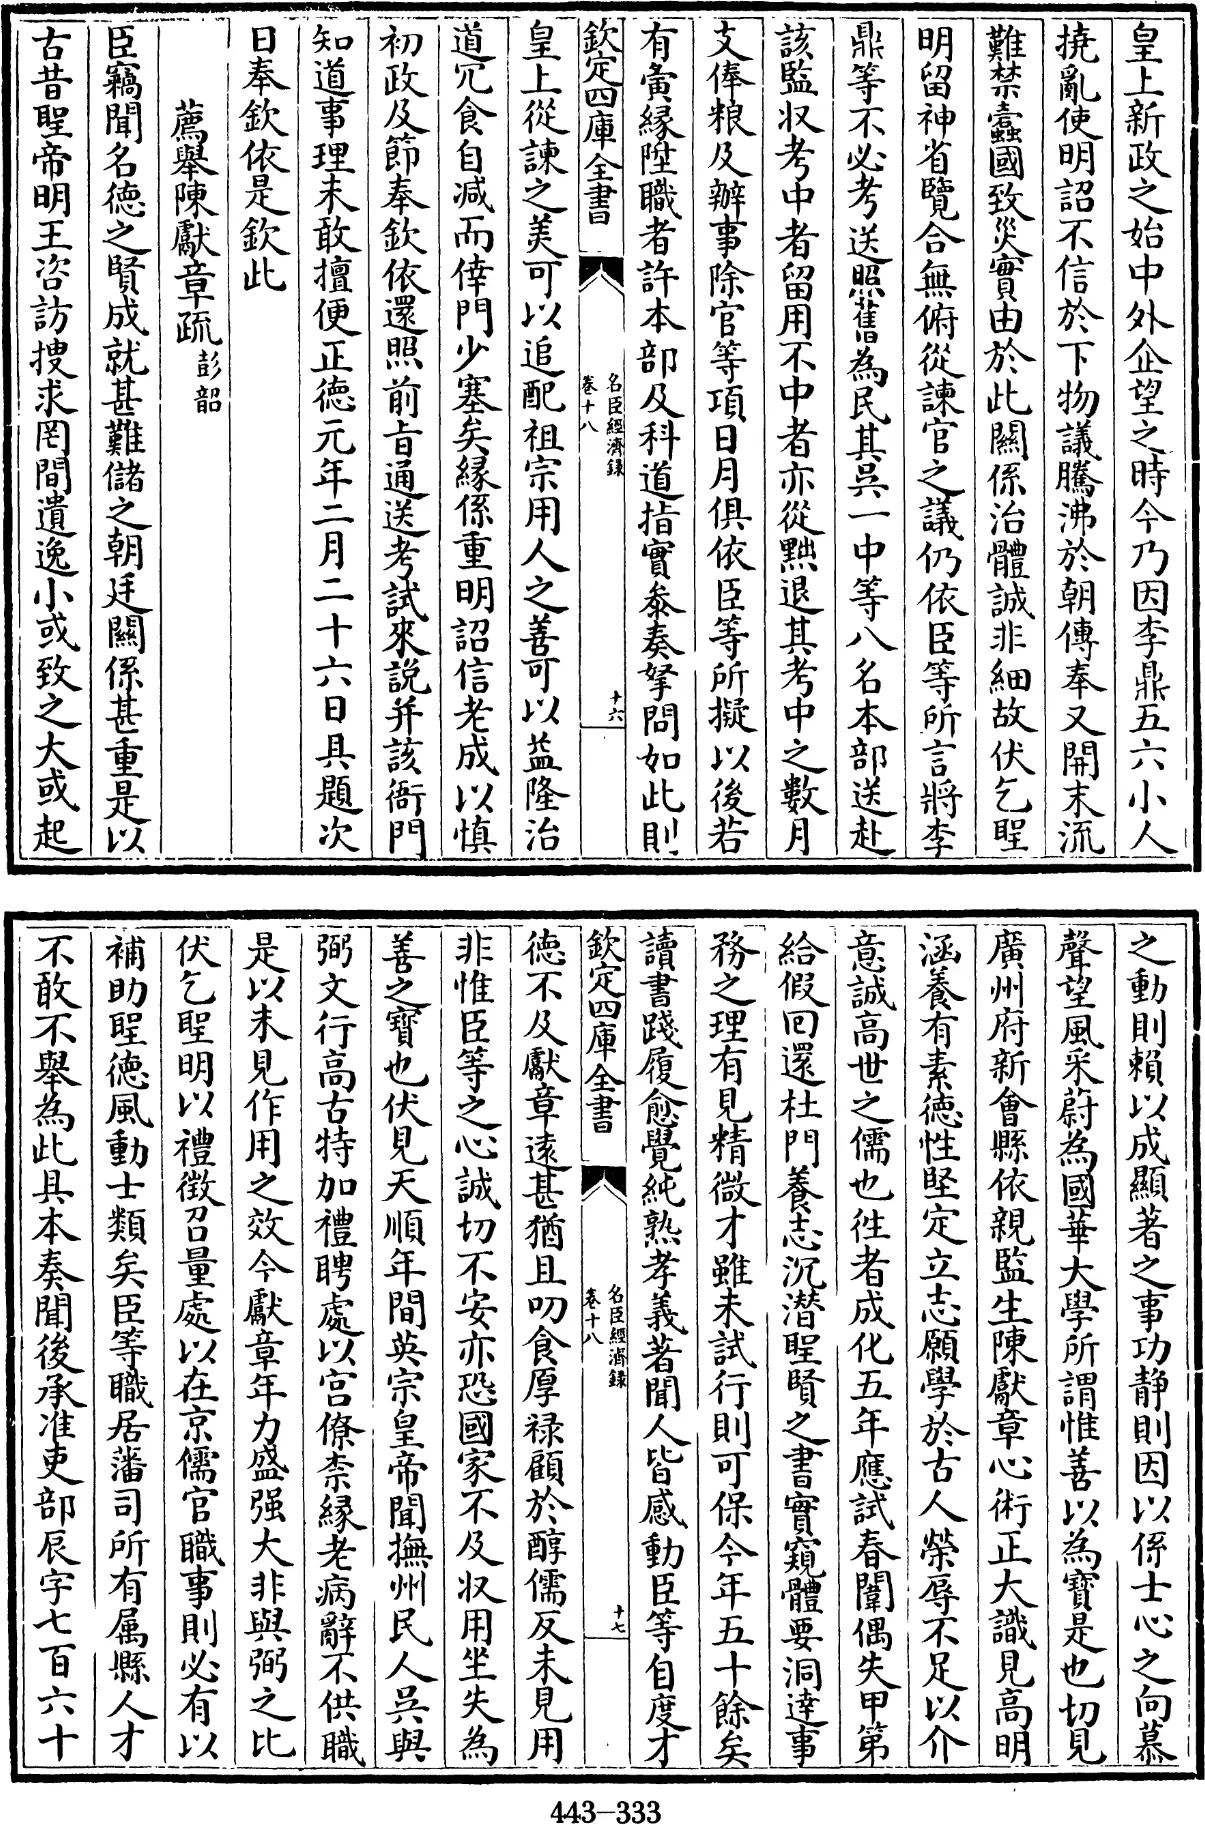 皇上新政之始中外企望之時今乃因李鼎五六小人
撓亂使明詔不信於下物議騰沸於朝傳奉又開末流
難禁蠧國致災實由於此關係治體誠非細故伏乞聖
明留神省覽合無俯從諫官之議仍依臣等所言將李
鼎等不必考送照舊為民其吳一中等八名本部送赴
該監収考中者留用不中者亦從黜退其考中之數月
支俸粮及辦事除官等項日月俱依臣等所擬以後若
有夤緣陞職者許本部及科道指實叅奏拏問如此則
欽定四庫全書
名臣經濟錄
卷十八
十六
皇上從諫之美可以追配祖宗用人之善可以益隆治
道冗食自减而倖門少塞矣緣係重明詔信老成以慎
初政及節奉欽依還照前旨通送考試來說并該衙門
知道事理未敢擅便正德元年二月二十六日具題次
日奉欽依是欽此
薦舉陳獻章疏 彭韶
臣竊聞名德之賢成就甚難儲之朝廷關係甚重是以
古昔聖帝明王咨訪搜求罔間遺逸小或致之大或起
之動則賴以成顯著之事功静則因以係士心之向慕
聲望風采蔚為國華大學所謂惟善以為寶是也切見
廣州府新會縣依親監生陳獻章心術正大識見高明
涵養有素德性堅定立志願學於古人榮辱不足以介
意誠高世之儒也徃者成化五年應試春闈偶失甲第
給假囘還杜門養志沉潛聖賢之書實窺體要洞達事
務之理有見精微才雖未試行則可保今年五十餘矣
讀書踐履愈覺純熟孝義著聞人皆感動臣等自度才
欽定四庫全書
名臣經濟錄
卷十八
十七
德不及獻章遠甚猶且叨食厚禄顧於醇儒反未見用
非惟臣等之心誠切不安亦恐國家不及収用坐失為
善之寶也伏見天順年間英宗皇帝聞撫州民人吳與
弼文行高古特加禮聘處以宫僚柰緣老病辭不供職
是以未見作用之效今獻章年力盛强大非與弼之比
伏乞聖明以禮徴召量處以在京儒官職事則必有以
補助聖德風動士類矣臣等職居藩司所有属縣人才
不敢不舉為此具本奏聞後承准吏部辰字七百六十
443-333